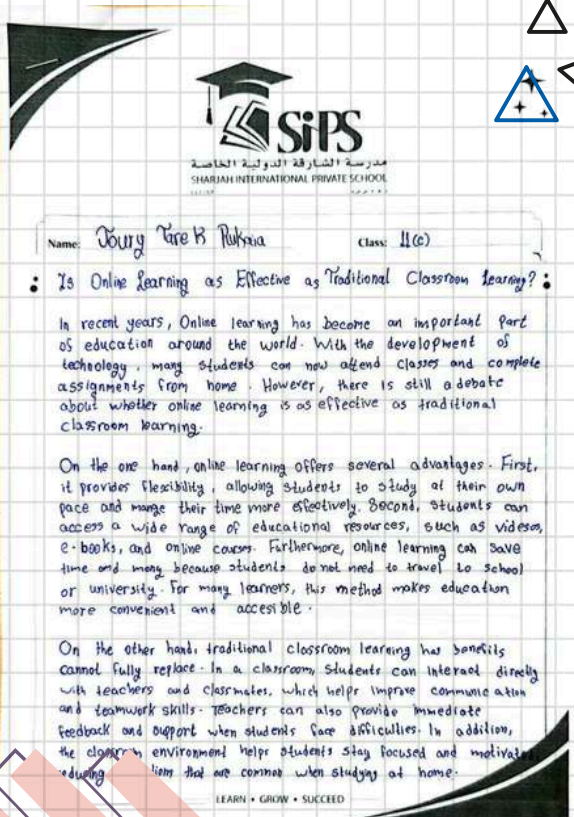 SiPS
مدرسة الشارقة الدولية الخاصة
SHARJAH INTERNATIONAL PRIVATE SCHOOL
Name: Joury Tarek Rukaia Class: 11(c)
: Is Online Learning as Effective as Traditional Classroom Learning? :
In recent years, Online learning has become an important part
of education around the world. With the development of
technology, many students can now attend classes and complete
assignments from home. However, there is still a debate
about whether online learning is as effective as traditional
classroom learning.
On the one hand, online learning offers several advantages. First,
it provides flexibility, allowing students to study at their own
pace and mange their time more effectively. Second, students can
access a wide range of educational resources, such as videos,
e-books, and online courses. Furthermore, online learning can save
time and mony because students do not need to travel to school
or university. For many learners, this method makes education
more convenient and accesible.
On the other hand, traditional classroom learning has benefits
cannot fully replace. In a classroom, students can interact directly
with teachers and classmates, which helps improve communication
and teamwork skills. Teachers can also provide immediate
feedback and support when students face difficulties. In addition,
the classroom environment helps students stay focused and motivated,
reducing that are common when studying at home.
LEARN • GROW • SUCCEED